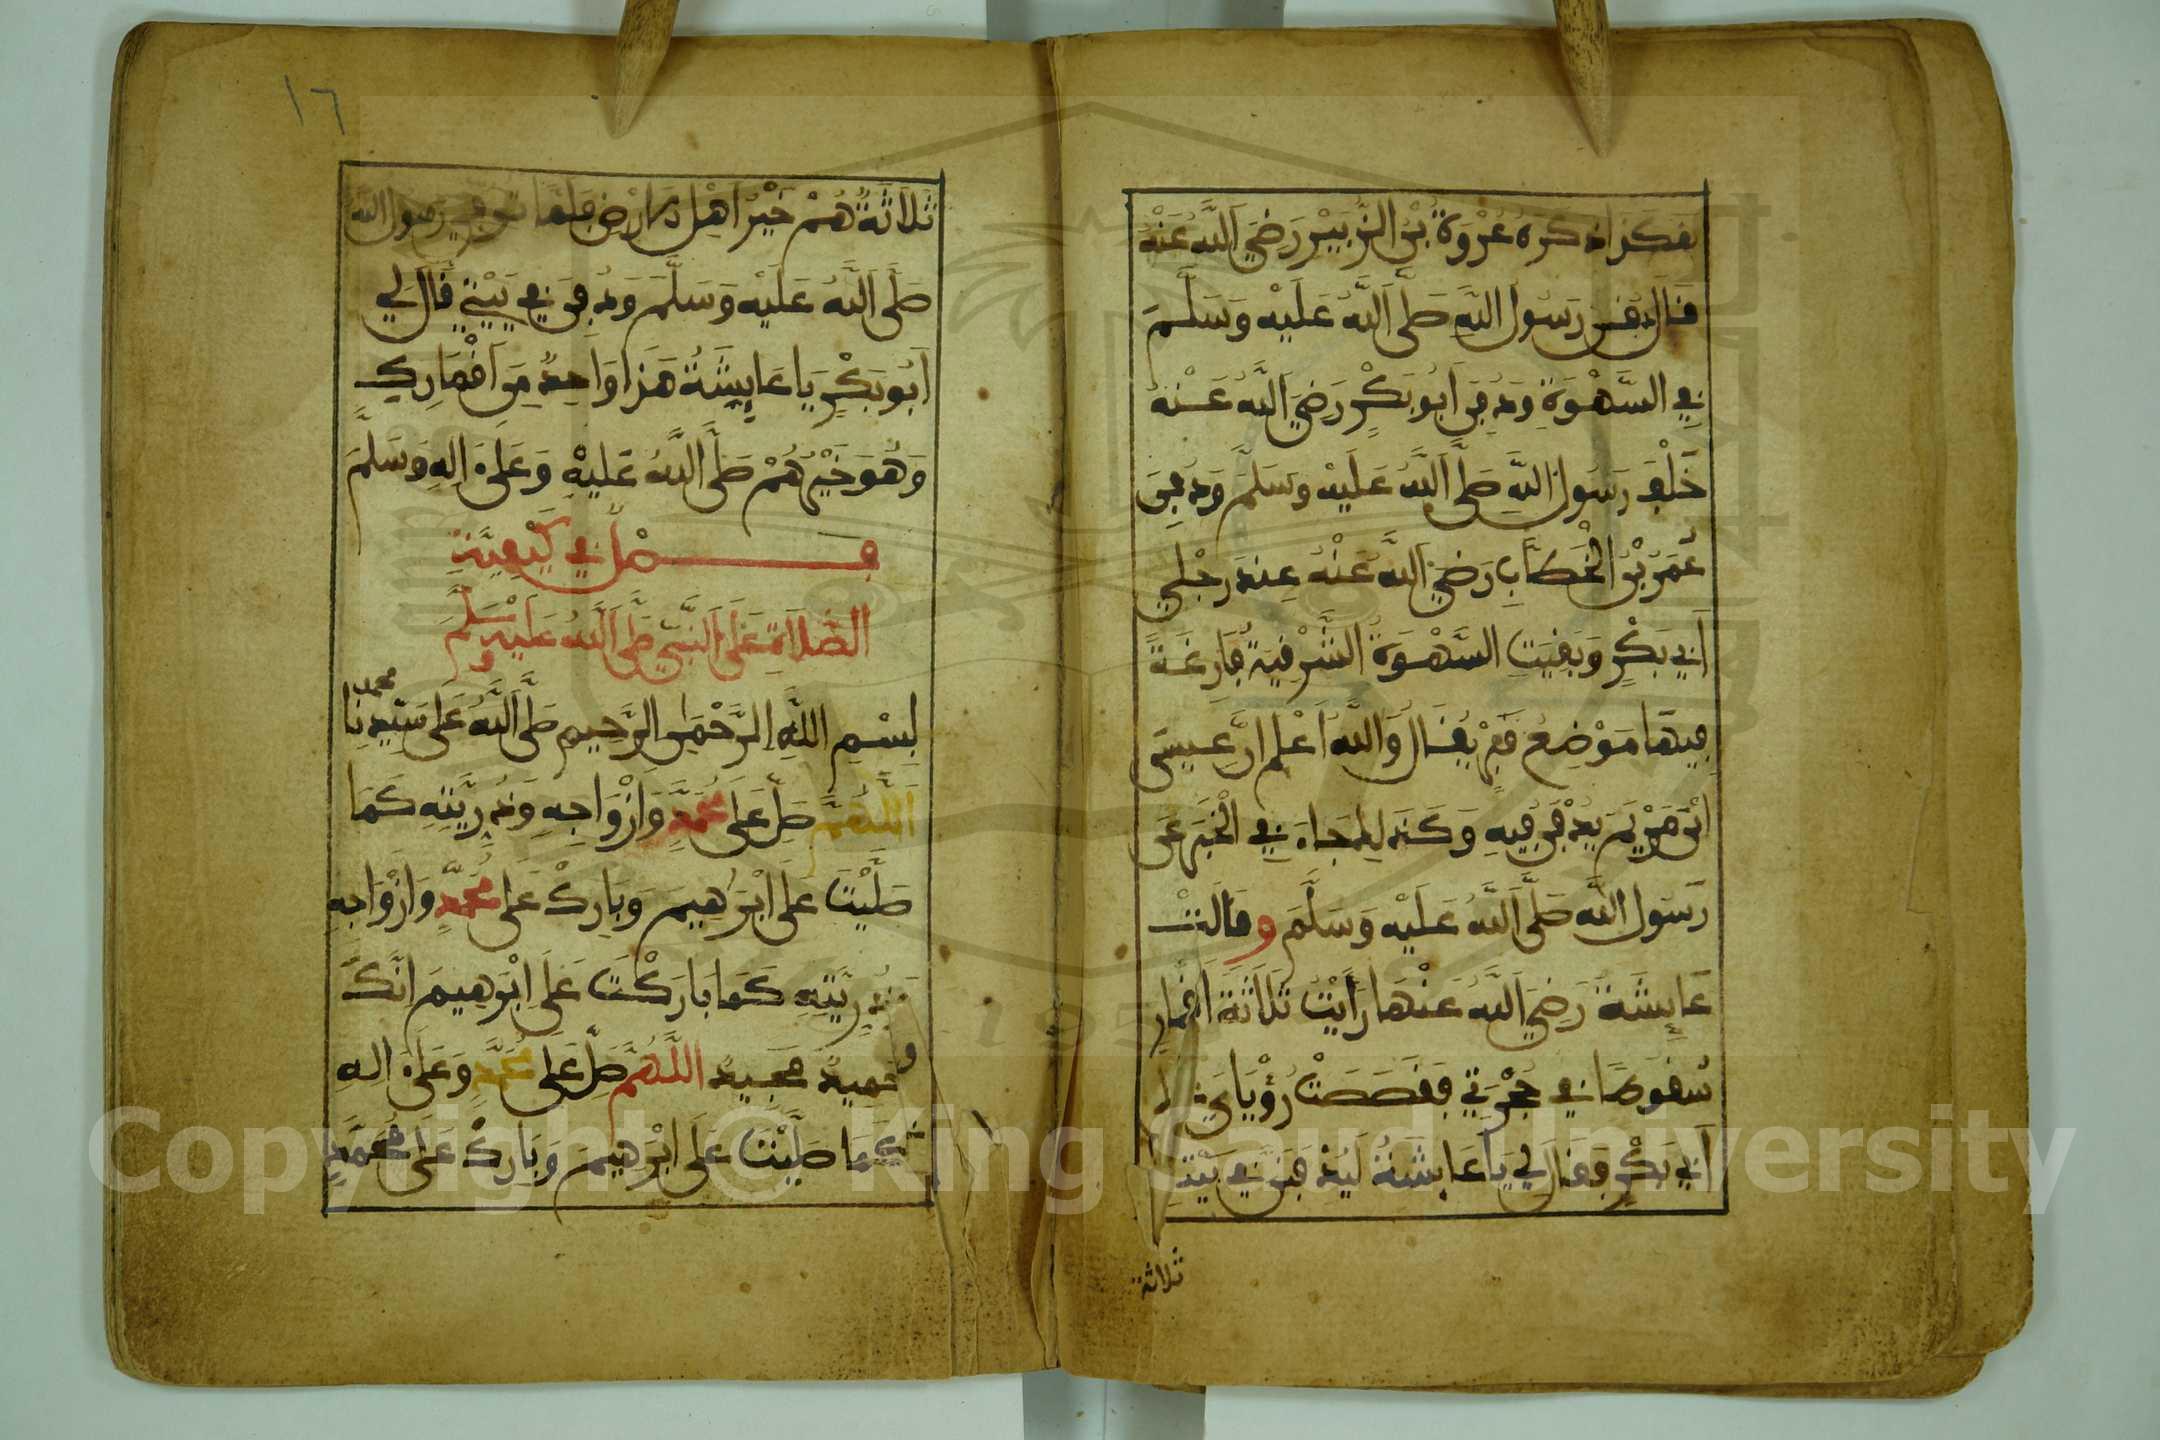 هَكَذَا ذَكَرَهُ عُرْوَةُ بْنُ الزُّبَيْرِ رَضِيَ اللَّهُ عَنْهُ
قَالَ دُفِنَ رَسُولُ اللَّهِ صَلَّى اللَّهُ عَلَيْهِ وَسَلَّمَ
فِي السَّهْوَةِ وَدُفِنَ أَبُو بَكْرٍ رَضِيَ اللَّهُ عَنْهُ
خَلْفَ رَسُولِ اللَّهِ صَلَّى اللَّهُ عَلَيْهِ وَسَلَّمَ وَدُفِنَ
عُمَرُ بْنُ الْخَطَّابِ رَضِيَ اللَّهُ عَنْهُ عِنْدَ رِجْلَيْ
أَبِي بَكْرٍ وَبَقِيَتِ السَّهْوَةُ الشَّرْقِيَّةُ فَارِغَةً
فِيهَا مَوْضِعُ قَبْرٍ يُقَالُ وَاللَّهُ أَعْلَمُ إِنَّ عِيسَى
ابْنَ مَرْيَمَ يُدْفَنُ فِيهِ وَكَذَلِكَ جَاءَ فِي الْخَبَرِ عَنْ
رَسُولِ اللَّهِ صَلَّى اللَّهُ عَلَيْهِ وَسَلَّمَ وَقَالَتْ
عَائِشَةُ رَضِيَ اللَّهُ عَنْهَا رَأَيْتُ ثَلَاثَةَ أَقْمَارٍ
سُقُوطًا فِي حُجْرَتِي فَقَصَصْتُ رُؤْيَايَ
أَبِي بَكْرٍ فَقَالَ لِي يَا عَائِشَةُ لَيُدْفَنَنَّ فِي بَيْتِكِ
ثلاثة
١٦
ثَلَاثَةٌ هُمْ خَيْرُ أَهْلِ الْأَرْضِ فَلَمَّا تُوُفِّيَ رَسُولُ اللَّهِ
صَلَّى اللَّهُ عَلَيْهِ وَسَلَّمَ وَدُفِنَ فِي بَيْتِي قَالَ لِي
أَبُو بَكْرٍ يَا عَائِشَةُ هَذَا وَاحِدٌ مِنْ أَقْمَارِكِ
وَهُوَ خَيْرُهُمْ صَلَّى اللَّهُ عَلَيْهِ وَعَلَى آلِهِ وَسَلَّمَ
فصل في كيفية
الصَّلَاةِ عَلَى النَّبِيِّ صَلَّى اللَّهُ عَلَيْهِ وَسَلَّمَ
بِسْمِ اللَّهِ الرَّحْمَنِ الرَّحِيمِ صَلَّى اللَّهُ عَلَى سَيِّدِنَا محمد
اللَّهُمَّ صَلِّ عَلَى مُحَمَّدٍ وَأَزْوَاجِهِ وَذُرِّيَّتِهِ كَمَا
صَلَّيْتَ عَلَى إِبْرَاهِيمَ وَبَارِكْ عَلَى مُحَمَّدٍ وَأَزْوَاجِهِ
وَذُرِّيَّتِهِ كَمَا بَارَكْتَ عَلَى إِبْرَاهِيمَ إِنَّكَ
حَمِيدٌ مَجِيدٌ اللَّهُمَّ صَلِّ عَلَى مُحَمَّدٍ وَعَلَى آلِهِ
كَمَا صَلَّيْتَ عَلَى إِبْرَاهِيمَ وَبَارِكْ عَلَى مُحَمَّدٍ
Copyright © King Saud University